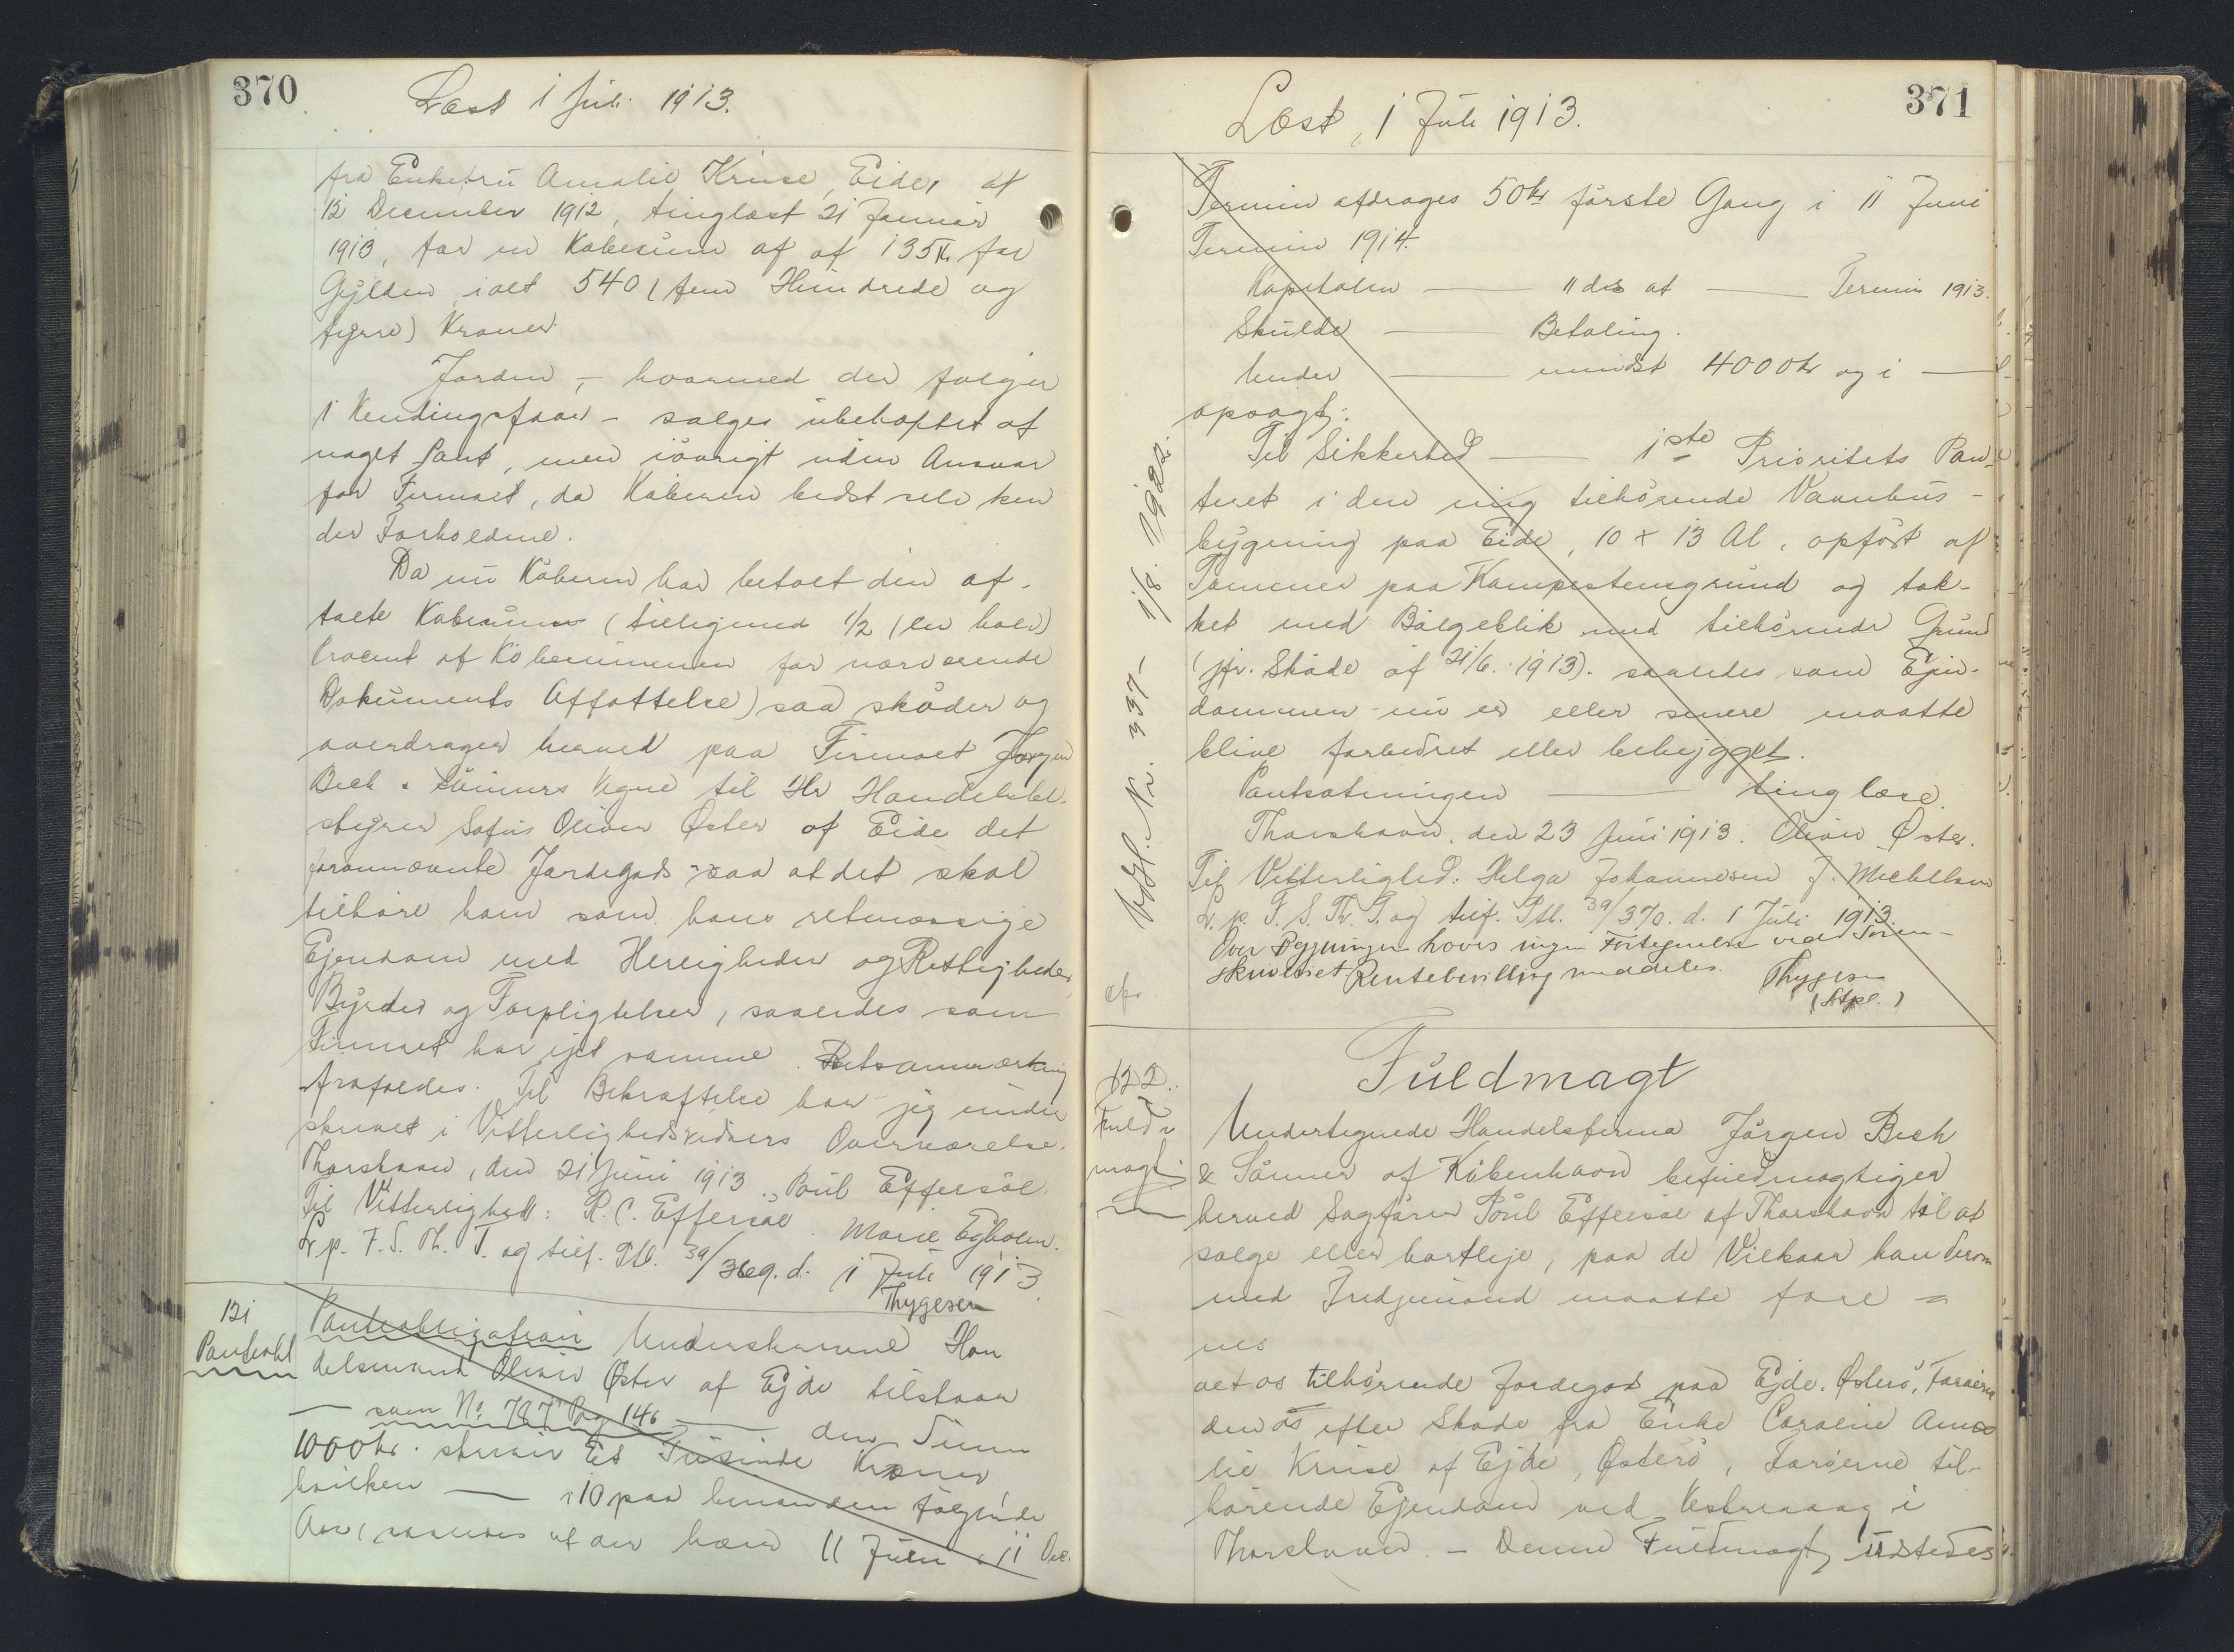 370
Læst 1 Juli 1913.
fra Enkefru Amalie Kruse, Eide, af
12 December 1912, tinglæst 21 Januar
1913, for en Købesum af af 135 Kr. for
Gylden, ialt 540 (fem Hundrede og
fyrre) Kroner.
Jorden, – hvormed der følger
1 Kendingsfaar – sælges ubehæftet af
noget Pant, men iøvrigt uden Ansvar
for Firmaet, da Køberen bedst selv ken
der Forholdene.
Da nu Køberen har betalt den af-
talte Købesum (tilligemed 1/2 (en halv)
Procent af Købesummen for nærværende
Dokuments Affattelse) saa skøder og
overdrager herved paa Firmaet Jørgen
Bech & Sønners Vegne til Hr Handelsbe-
styrer Sofus Oliver Øster af Eide det
forannævnte Jordegods saa at det skal
tilhøre ham som hans retmæssige
Ejendom med Herligheder og Rettigheder,
Byrder og Forpligtelser, saaledes som
Firmaet har ejet samme. Retsanmærkning
frafaldes. Til Bekræftelse har jeg under
skrevet i Vitterlighedsvidners Overværelse.
Thorshavn, den 21 Juni 1913. Poul Effersøe.
Til Vitterlighed: R. C. Effersøe. Marie Egholm.
L. p. F. S. Th. T. og tilf. Ptl. 39/369. d. 1 Juli 1913.
Thygesen
121
Pantobl
Pantobligation Underskrevne Han
delsmand Oliver Øster af Ejde tilstaar
— som No. 767 Pag 146 — den Sum
1000 kr. skriver Et Tusinde Kroner
hvilken — i 10 paa hinanden følgende
Aar, saaledes at der hver 11 Juni & 11 Dec.
371
Læst, 1 Juli 1913.
Termin afdrages 50 kr første Gang i 11 Juni
Termin 1914.
Kapitalen — 11 ds at — Termin 1913.
Skulde — Betaling.
Under — mindst 4000 kr og i —
opsagt.
Til Sikkerhed — 1ste Prioritets Pan-
teret i den mig tilhørende Vaanhus-
bygning paa Eide, 10 x 13 Al, opført af
Tømmer paa Kampestensgrund og tæk-
ket med Bølgeblik med tilhørende Grund
(jfr. Skøde af 21/6. 1913). saaledes som Ejen-
dommen nu er eller senere maatte
blive forbedret eller bebygget.
Pantsætningen — tinglæse.
Thorshavn, den 23 Juni 1913. Oliver Øster.
Til Vitterlighed: Helga Johannesen J. Michelsen
L. p. F. S. Th. T. og tilf. Ptl. 39/370. d. 1 Juli 1913.
Over Bygningen haves ingen Fortegnelse ved Soren-
skriveriet Rentebevilling meddeles. Thygesen
(Stpl.)
Udsl. Nr. 337 – 1/8. 1922.
cfr.
122.
Fuld-
magt
Fuldmagt
Undertegnede Handelsfirma Jørgen Bech
& Sønner af København befuldmægtiger
herved Sagfører Poul Effersøe af Thorshavn til at
sælge eller bortleje, paa de Vilkaar han derom
med Tredjemand maatte fore =
nes
alt os tilhørende Jordegods paa Ejde, Østerø, Færøerne
den os efter Skøde fra Enke Caroline Ama
lie Kruse af Ejde, Østerø, Færøerne til-
hørende Ejendom ved Vestervaag i
Thorshavn. – Denne Fuldmagt udstedes